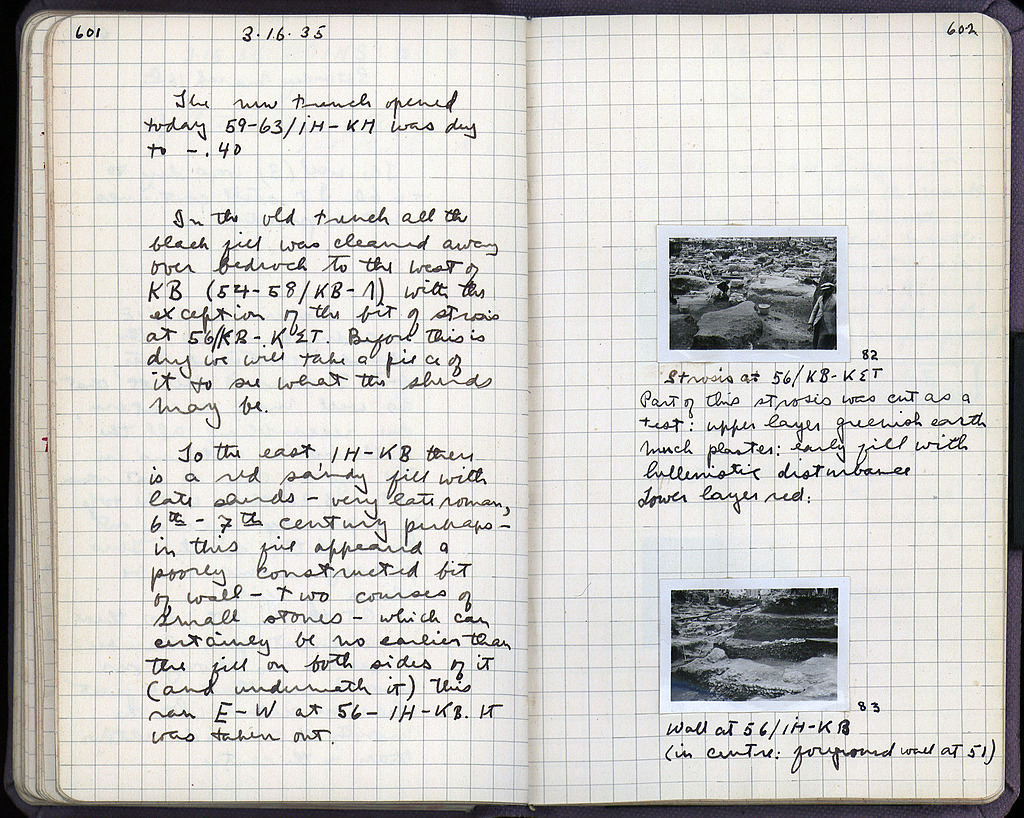 601
3·16·35
The new trench opened
today 59-63/ΙΗ-ΚΗ was dug
to -.40
In the old trench all the
black fill was cleaned away
over bedrock to the west of
KB (54-58/KB-Λ) with the
exception of the bit of strosis
at 56/KB-KΣT. Before this is
dug we will take a piece of
it to see what the sherds
may be.
To the east ΙΗ-KB there
is a red sandy fill with
late sherds - very late roman,
6th - 7th century perhaps -
in this fill appeared a
poorly constructed bit
of wall - two courses of
small stones - which can
certainly be no earlier than
the fill on both sides of it
(and underneath it) This
ran E-W at 56-ΙΗ-KB. It
was taken out.
602
82
Strosis at 56/KB-KΣT
Part of this strosis was cut as a
test: upper layer greenish earth
much plaster: early fill with
hellenistic disturbance
Lower layer red:
83
Wall at 56/ΙΗ-KB
(in centre: foreground wall at 51)